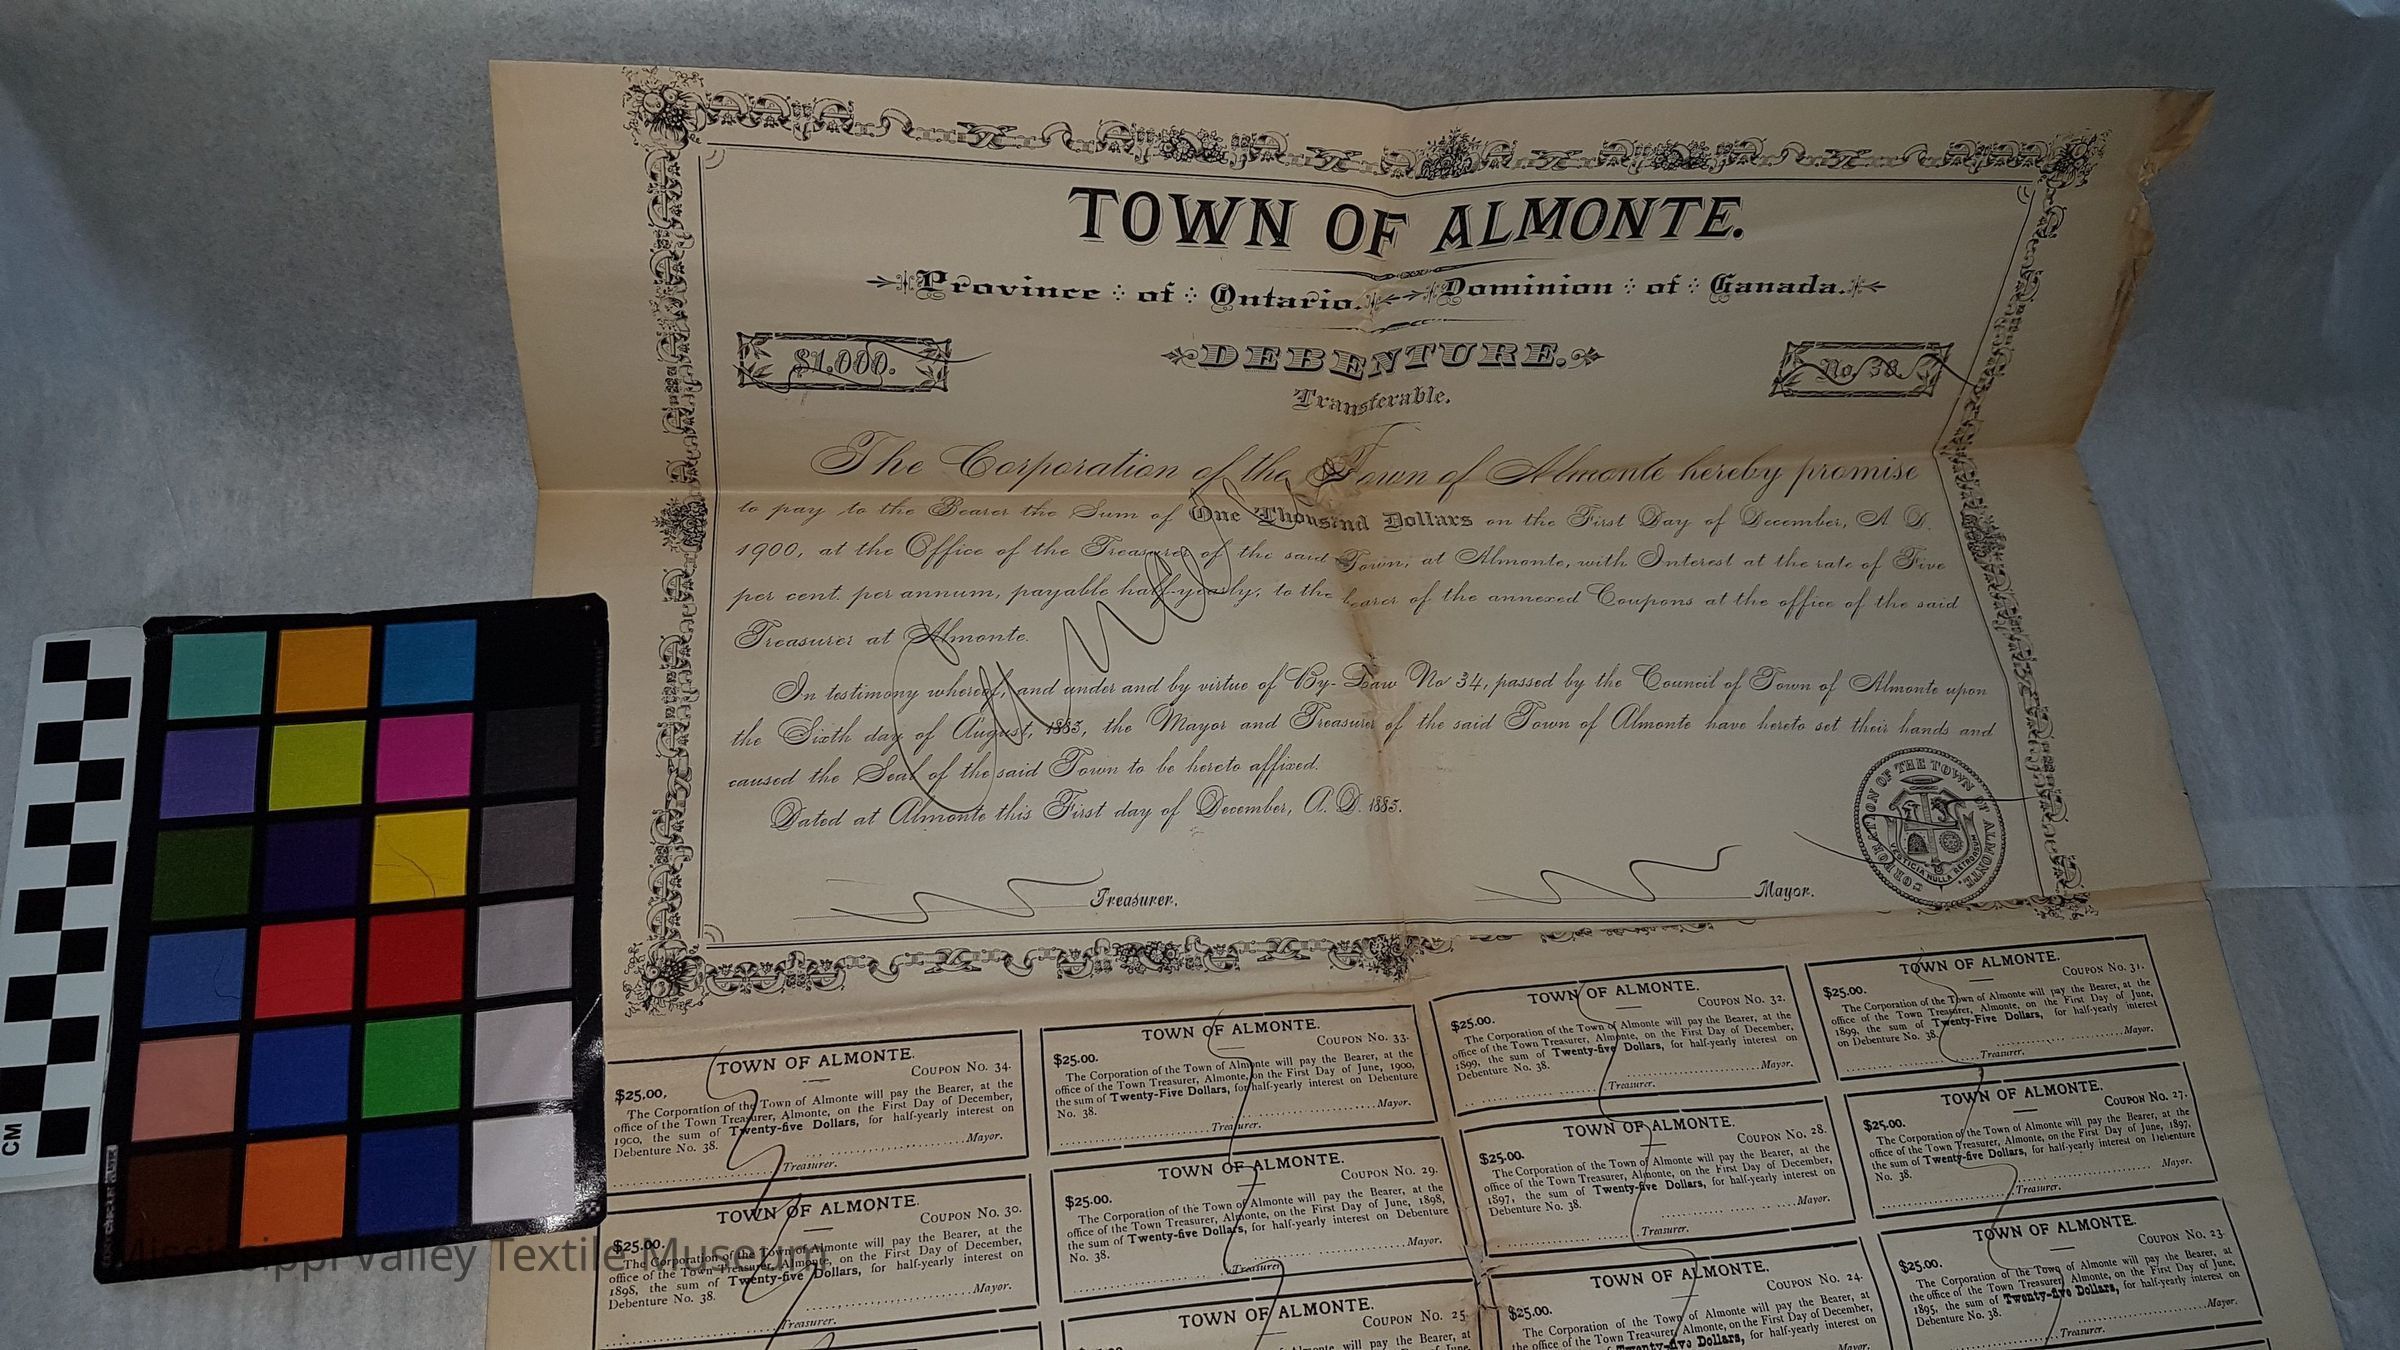 TOWN OF ALMONTE.
Province of Ontario. Dominion of Canada.
$1.000.
DEBENTURE.
No. 38.
Transferable.
The Corporation of the Town of Almonte hereby promise
to pay to the Bearer the Sum of One Thousand Dollars on the First Day of December, A. D.
1900, at the Office of the Treasurer of the said Town, at Almonte, with Interest at the rate of Five
per cent. per annum, payable half-yearly, to the bearer of the annexed Coupons at the office of the said
Treasurer at Almonte.
In testimony whereof, and under and by virtue of By-Law No 34, passed by the Council of Town of Almonte upon
the Sixth day of August, 1883, the Mayor and Treasurer of the said Town of Almonte have hereto set their hands and
caused the Seal of the said Town to be hereto affixed.
Dated at Almonte this First day of December, A. D. 1883.
CORPORATION OF THE TOWN OF ALMONTE.
VESTIGIA NULLA RETRORSUM
Treasurer.
Mayor.
TOWN OF ALMONTE.
COUPON No. 34.
$25.00.
The Corporation of the Town of Almonte will pay the Bearer, at the
office of the Town Treasurer, Almonte, on the First Day of December,
1900, the sum of Twenty-five Dollars, for half-yearly interest on
Debenture No. 38.
Mayor.
Treasurer.
TOWN OF ALMONTE.
COUPON No. 33.
$25.00.
The Corporation of the Town of Almonte will pay the Bearer, at the
office of the Town Treasurer, Almonte, on the First Day of June, 1900,
the sum of Twenty-Five Dollars, for half-yearly interest on Debenture
No. 38.
Mayor.
Treasurer.
TOWN OF ALMONTE.
COUPON No. 32.
$25.00.
The Corporation of the Town of Almonte will pay the Bearer, at the
office of the Town Treasurer, Almonte, on the First Day of December,
1899, the sum of Twenty-five Dollars, for half-yearly interest on
Debenture No. 38.
Mayor.
Treasurer.
TOWN OF ALMONTE.
COUPON No. 31.
$25.00.
The Corporation of the Town of Almonte will pay the Bearer, at the
office of the Town Treasurer, Almonte, on the First Day of June,
1899, the sum of Twenty-Five Dollars, for half-yearly interest
on Debenture No. 38.
Mayor.
Treasurer.
TOWN OF ALMONTE.
COUPON No. 30.
$25.00.
The Corporation of the Town of Almonte will pay the Bearer, at the
office of the Town Treasurer, Almonte, on the First Day of December,
1898, the sum of Twenty-five Dollars, for half-yearly interest on
Debenture No. 38.
Mayor.
Treasurer.
TOWN OF ALMONTE.
COUPON No. 29.
$25.00.
The Corporation of the Town of Almonte will pay the Bearer, at the
office of the Town Treasurer, Almonte, on the First Day of June, 1898,
the sum of Twenty-five Dollars, for half-yearly interest on Debenture
No. 38.
Mayor.
Treasurer
TOWN OF ALMONTE.
COUPON No. 28.
$25.00.
The Corporation of the Town of Almonte will pay the Bearer, at the
office of the Town Treasurer, Almonte, on the First Day of December,
1897, the sum of Twenty-five Dollars, for half-yearly interest on
Debenture No. 38.
Mayor.
Treasurer.
TOWN OF ALMONTE.
COUPON No. 27.
$25.00.
The Corporation of the Town of Almonte will pay the Bearer, at the
office of the Town Treasurer, Almonte, on the First Day of June, 1897,
the sum of Twenty-five Dollars, for half-yearly interest on Debenture
No. 38.
Mayor.
Treasurer.
TOWN OF ALMONTE.
COUPON No. 25
will pay the Bearer, at
TOWN OF ALMONTE.
COUPON No. 24.
$25.00.
The Corporation of the Town of Almonte will pay the Bearer, at
the office of the Town Treasurer, Almonte, on the First Day of December,
Twenty-five Dollars, for half-yearly interest on
Mayor.
TOWN OF ALMONTE.
COUPON No. 23.
$25.00.
The Corporation of the Town of Almonte will pay the Bearer, at
the office of the Town Treasurer, Almonte, on the First Day of June,
1895, the sum of Twenty-five Dollars, for half-yearly interest on
Debenture No. 38.
Mayor.
Treasurer.
CM
Mississippi Valley Textile Museum